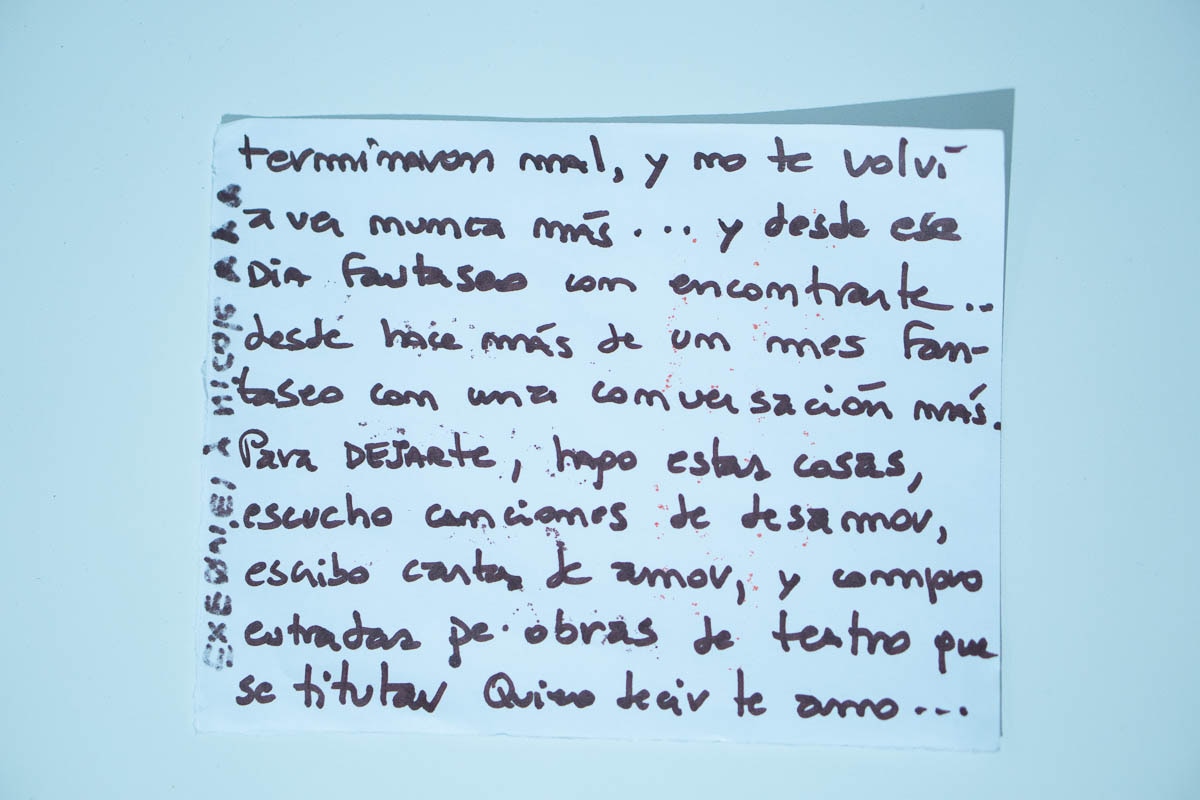 terminaron mal, y no te volví
a ver nunca más... y desde ese
DIA fantaseo con encontrarte...
desde hace más de un mes fan-
taseo con una conversación más.
Para DEJARTE, hago estas cosas,
escucho canciones de desamor,
escribo cartas de amor, y compro
entradas de obras de teatro que
se titulan Quiero decir te amo...